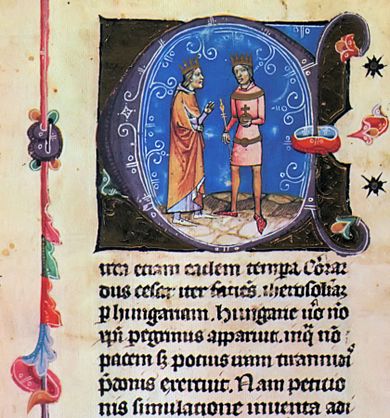 Circa eciam eadem tempa Cōrar
dus cesar iter facies iherosolimā
p hungariam. Hungarie ūo nō
xpi pegrinus apparuit. inq̄ nō
pacem sz pocius iram tirannidi
p̄donis exercuit. Nam peticio
nis simulacione inuenta adi